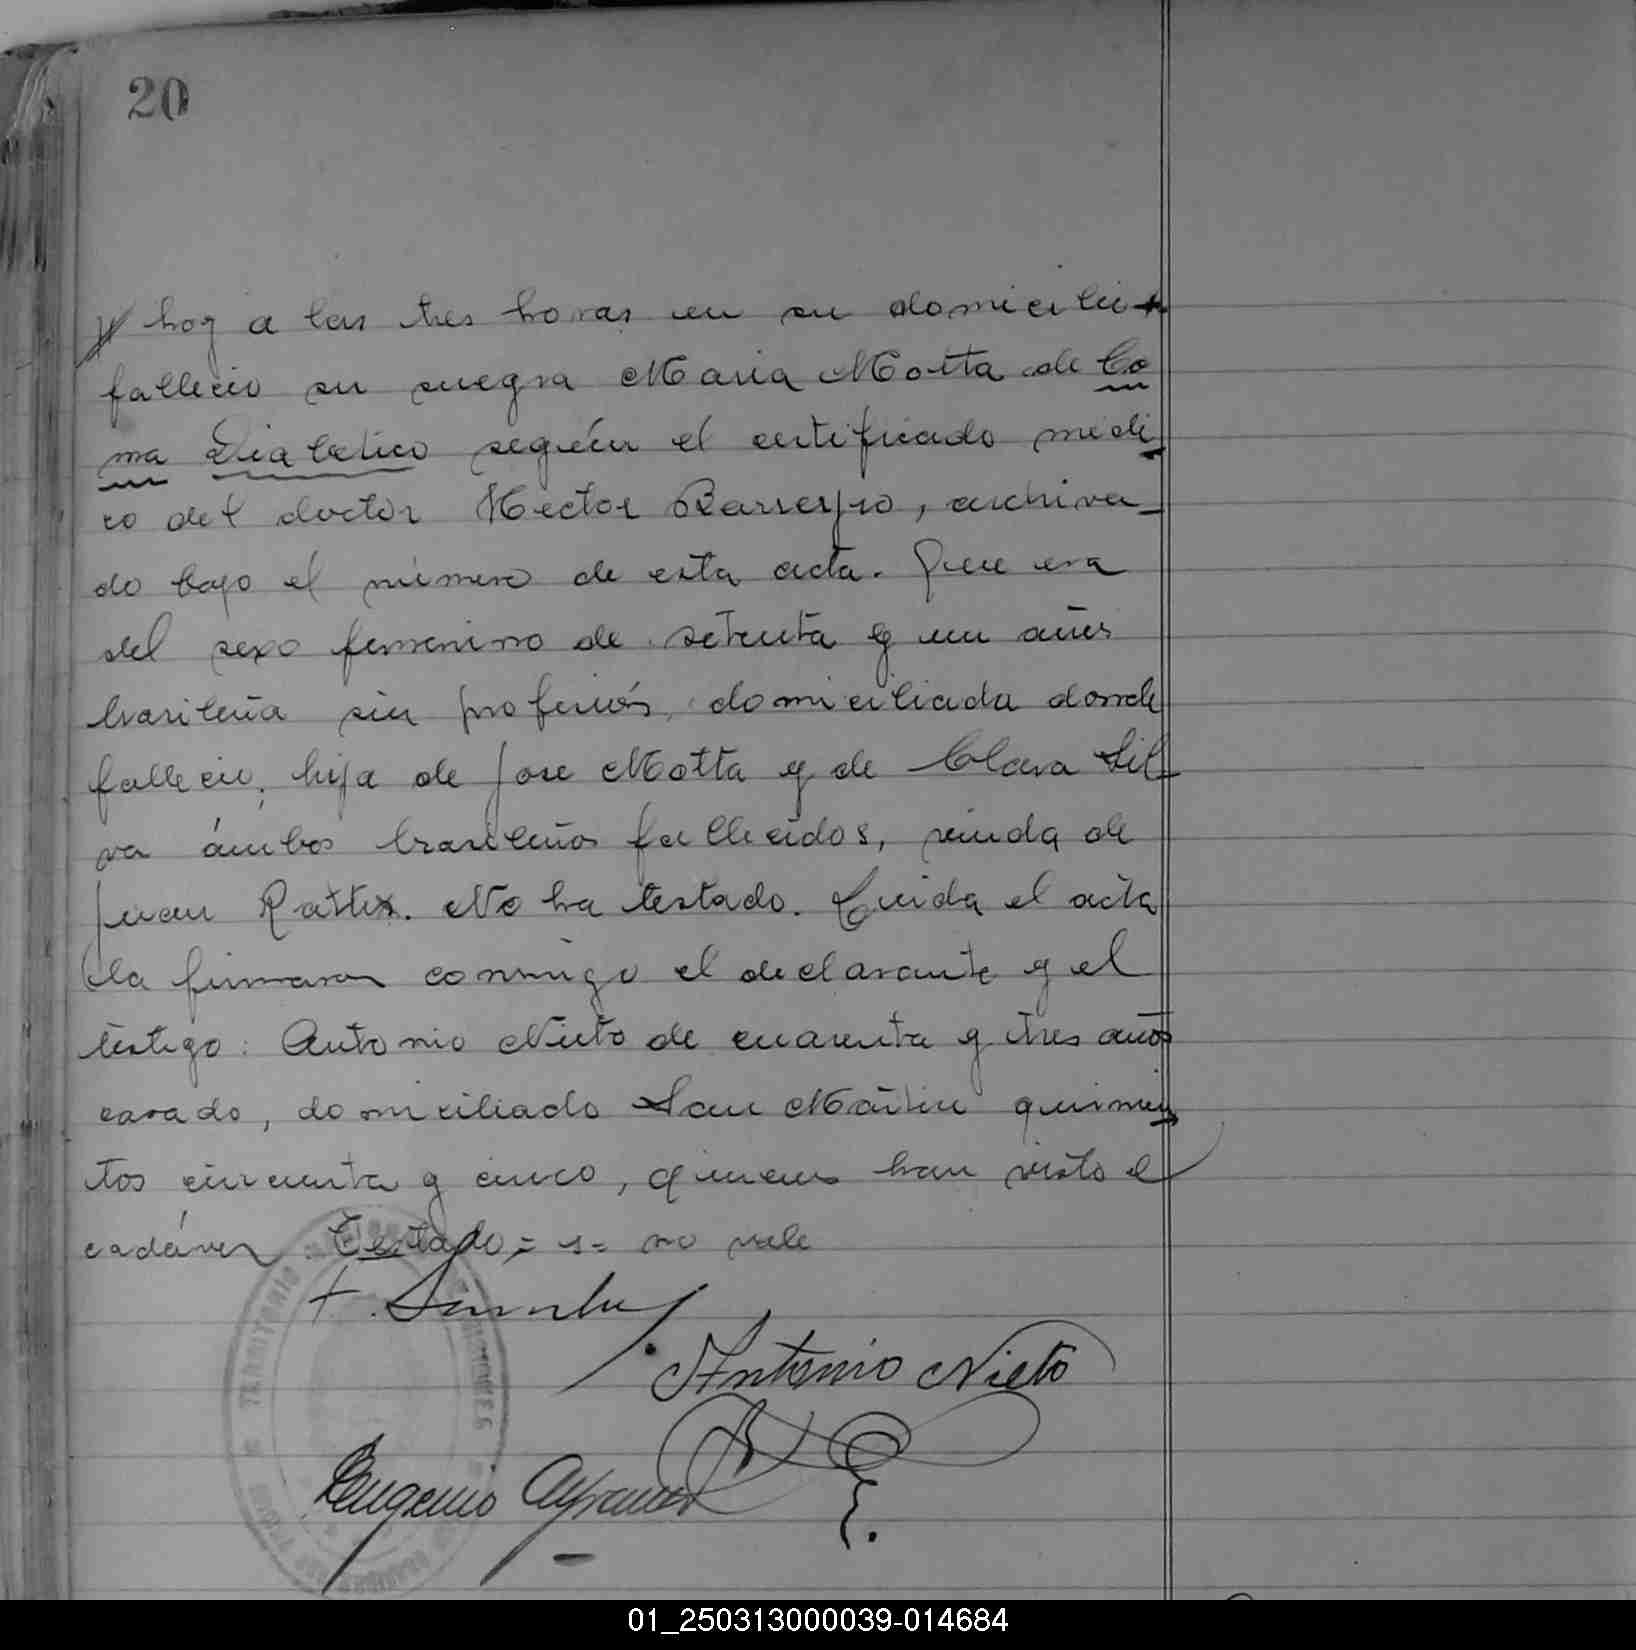 20
hoy a las tres horas en su domicilio
fallecio su suegra Maria Motta de Co
ma Diabetico según el certificado medi
co del doctor Hector Barreyro, archiva_
do bajo el número de esta acta. Que era
del sexo femenino de setenta y un años
brasileña sin profesión, domiciliada donde
fallecio, hija de Jose Motta y de Clara Sil_
va ámbos brasileños fallecidos, viuda de
Juan. No ha testado. Leida el acta
la firmaron conmigo el declarante y el
testigo: Antonio Nieto de cuarenta y tres años
casado, domiciliado San Martin quinien
tos cincuenta y cinco, quienes han visto el
cadáver. Testado = s = no vale
Antonio Nieto
Eugenio
TERRITORIO MISIONES
01_250313000039-014684